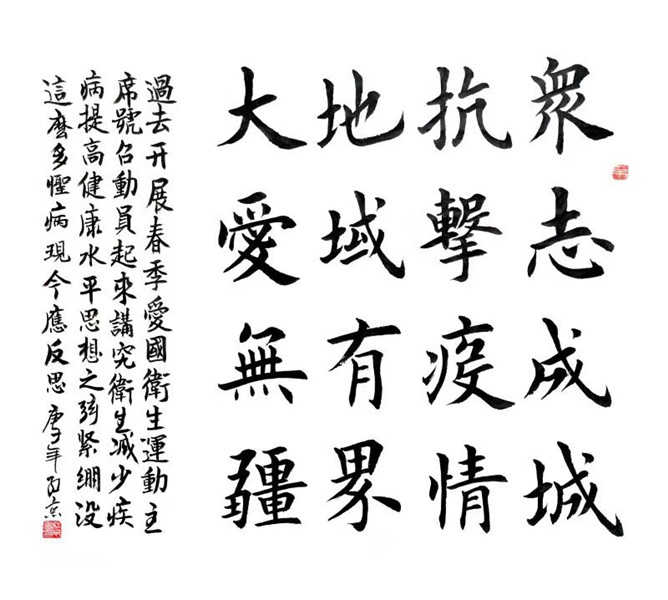 衆志成城
抗擊疫情
地域有界
大愛無疆
過去开展春季愛國衛生運動主
席號召動員起來講究衛生减少疾
病提高健康水平思想之弦緊绷没
這麽多病現今應反思 庚子年